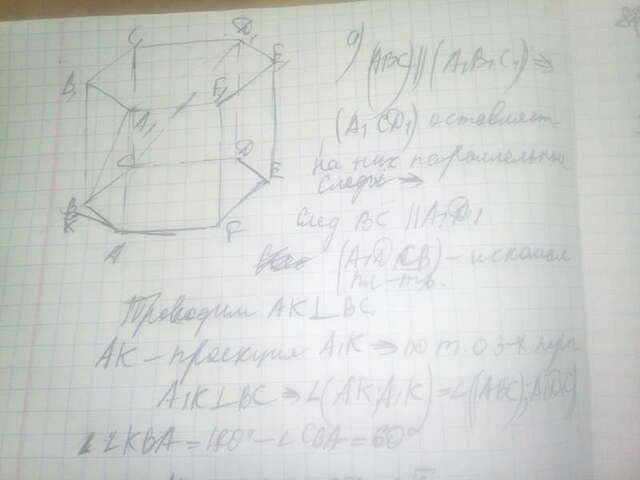 C₁ D₁
B₁ E₁
A₁ F₁
C D
B E
K
A F
а) (ABC) || (A₁B₁C₁) ⇒
(A₁CD₁) оставляет
на них параллельны
следы ⇒
след BC || A₁D₁
(A₁D₁CB) – искомая
пл-ть.
Проводим AK⊥BC
AK – проекция A₁K ⇒ по т. о 3-х пер
A₁K⊥BC ⇒ ∠(AK, A₁K) = ∠((ABC); A₁D₁C)
∠KBA = 180° – ∠CBA = 60°